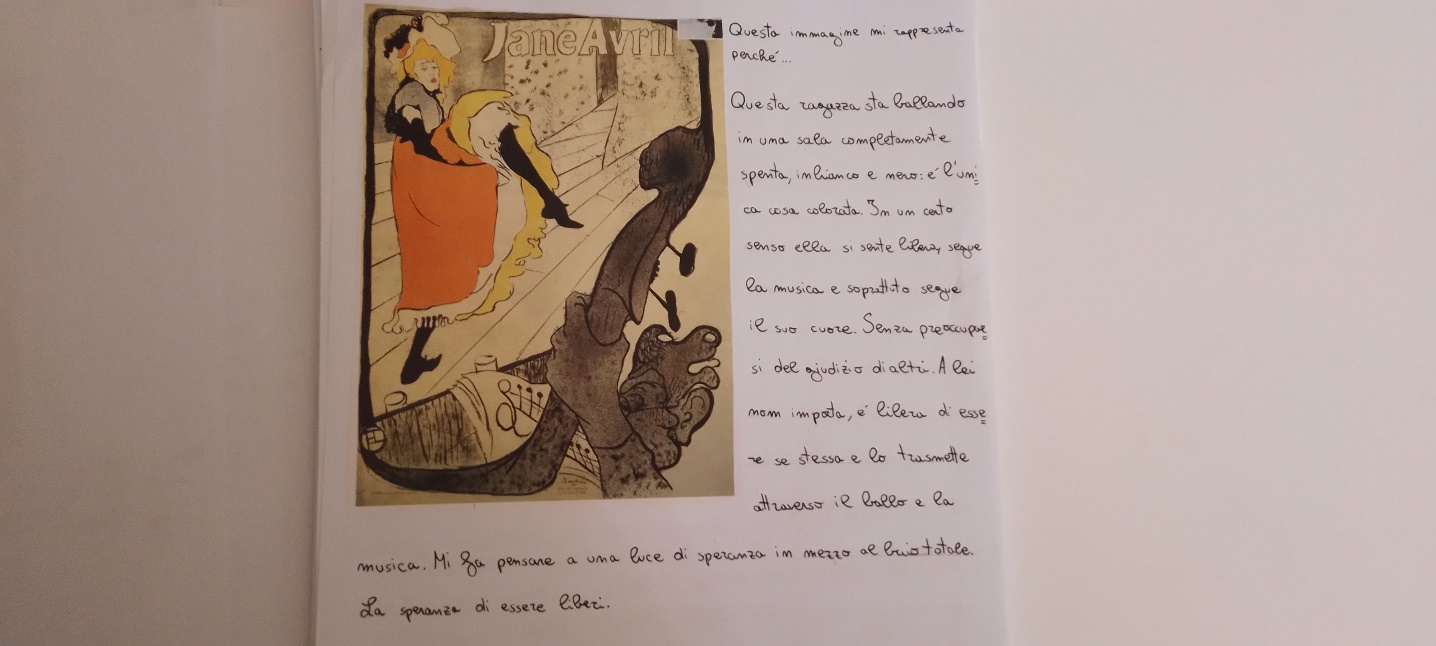 Jane Avril
Questa immagine mi rappresenta
perché...
Questa ragazza sta ballando
in una sala completamente
spenta, in bianco e nero: é l'uni
ca cosa colorata. In un certo
senso ella si sente libera, segue
la musica e soprattuto segue
il suo cuore. Senza preoccupar
si del giudizio di altri. A lei
non importa, é libera di esse
re se stessa e lo trasmette
attraverso il ballo e la
musica. Mi fa pensare a una luce di speranza in mezzo al buio totale.
La speranza di essere liberi.